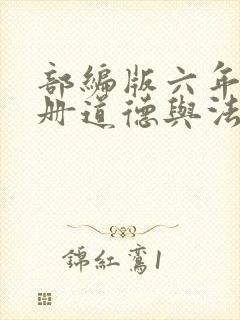 部編版六年
冊道德與法
錦紅鸞1